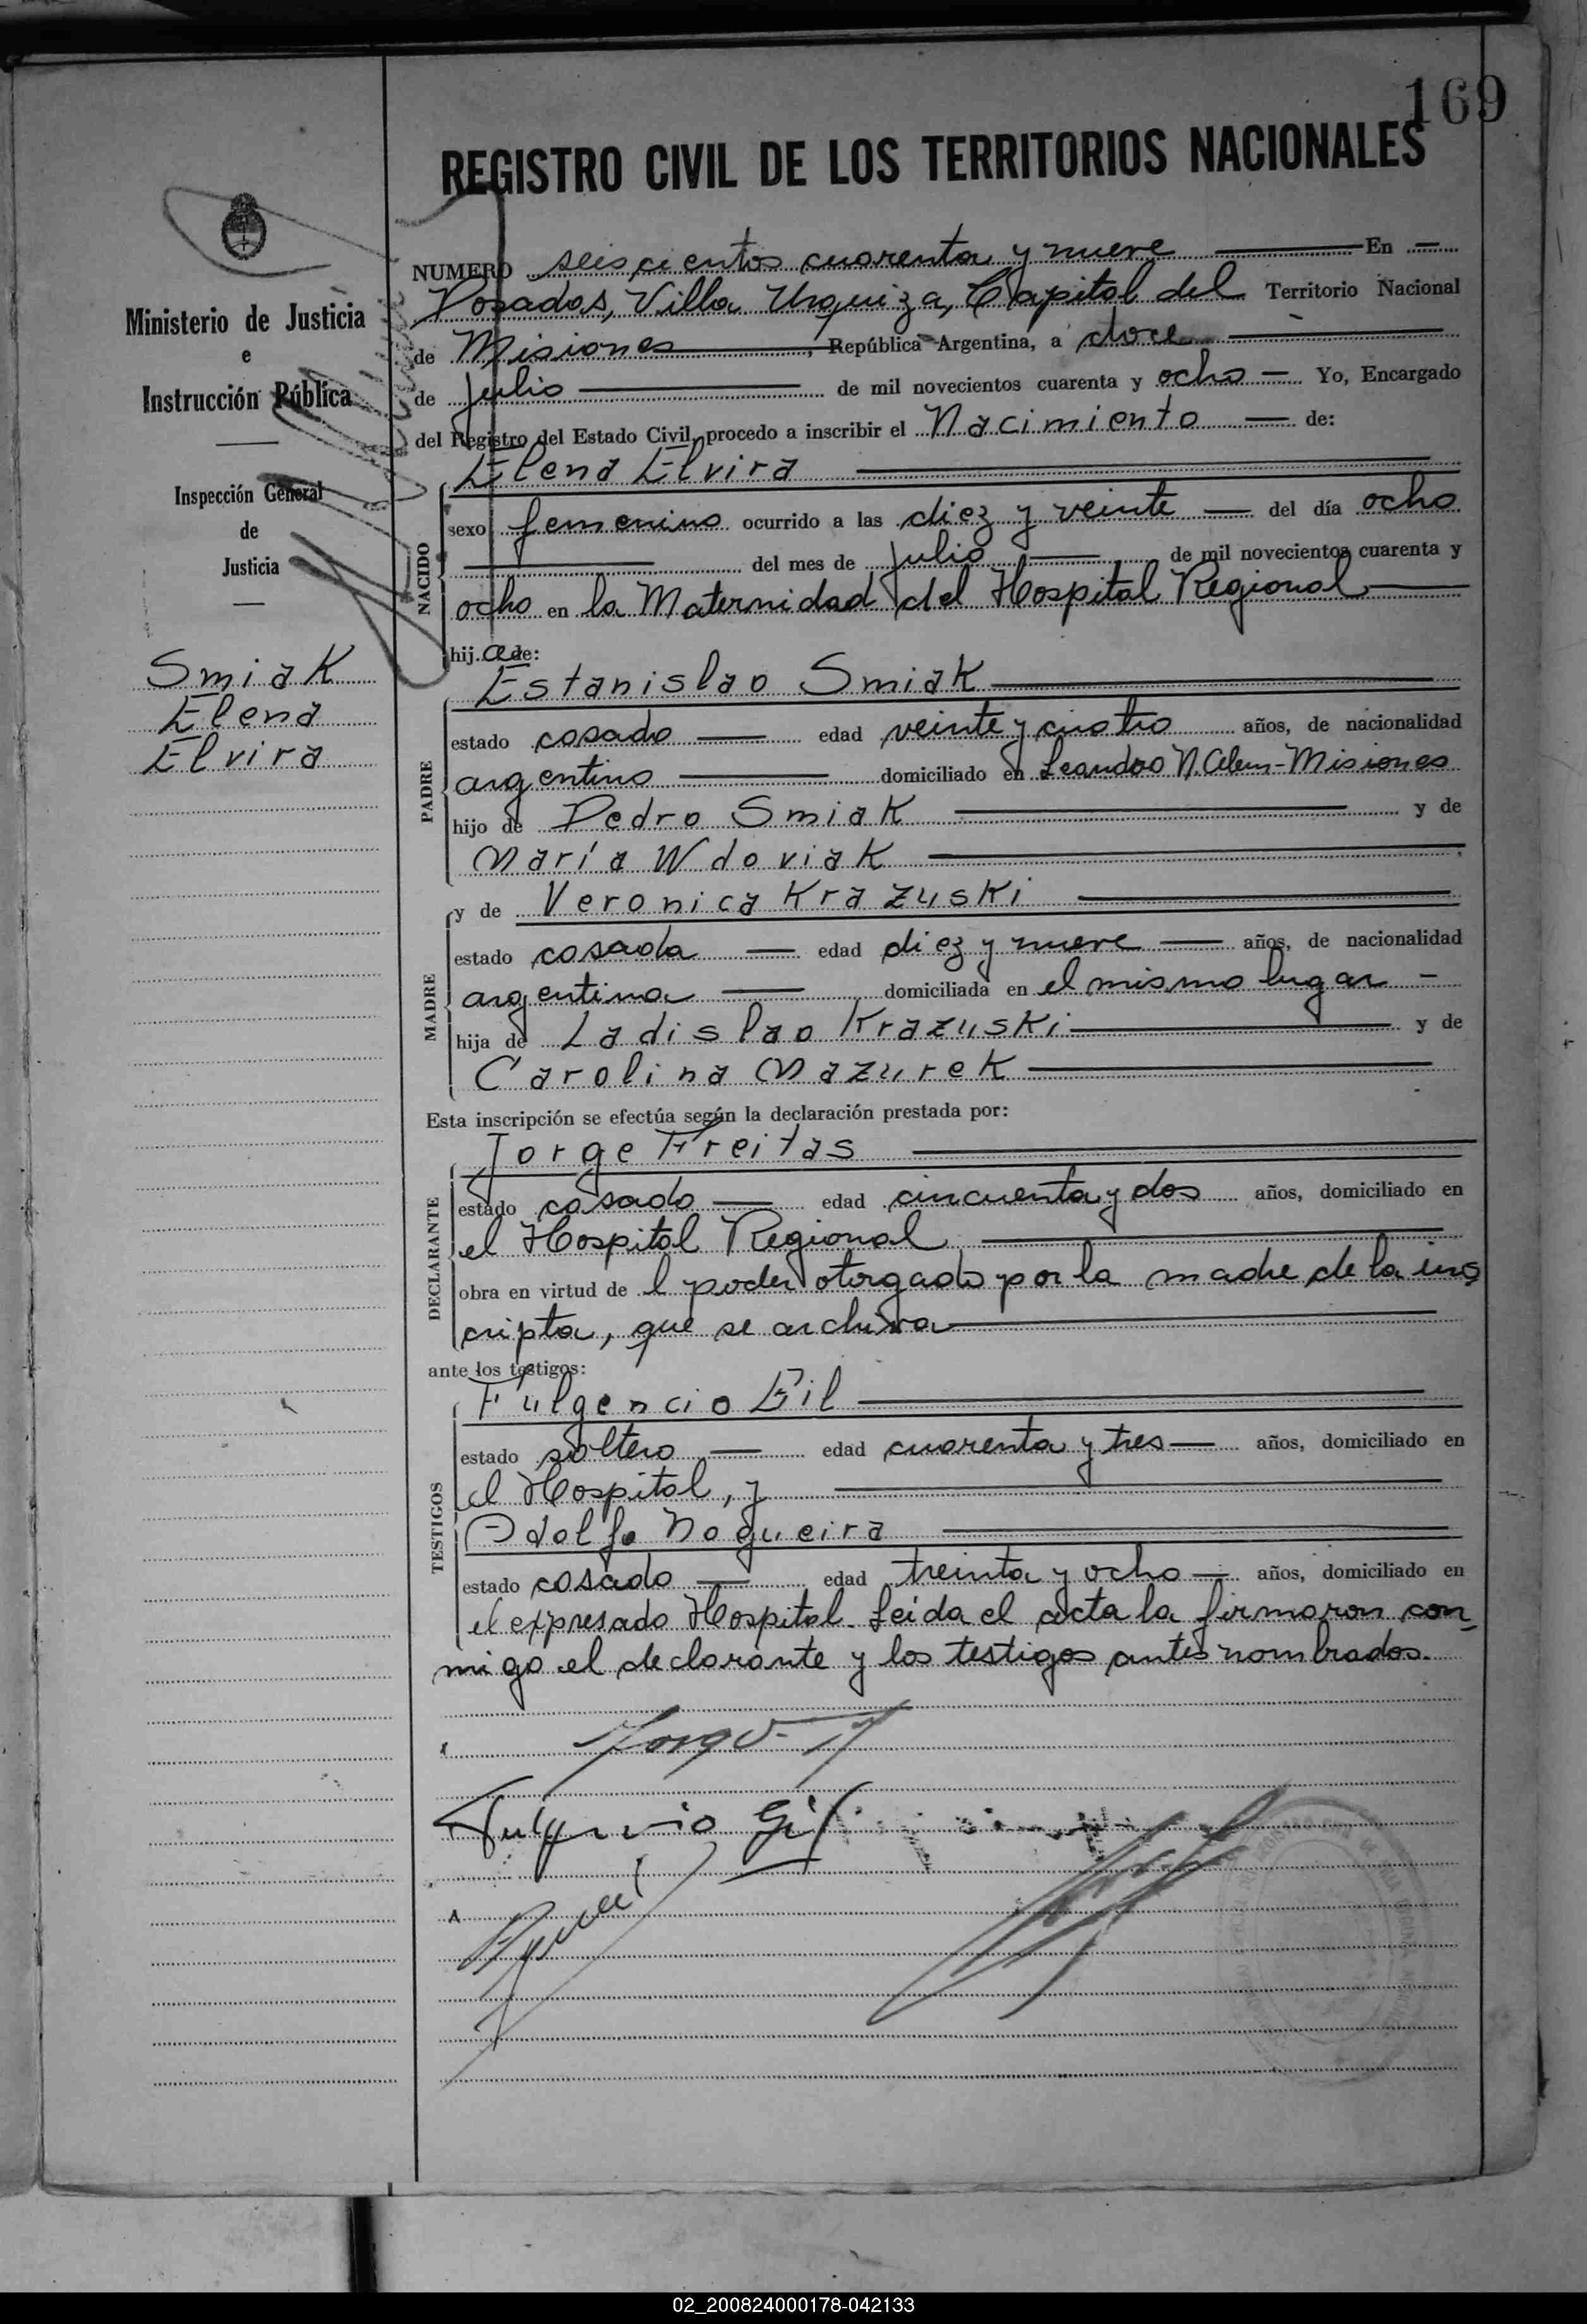 169
REGISTRO CIVIL DE LOS TERRITORIOS NACIONALES
Ministerio de Justicia
e
Instrucción Pública
Inspección General
de
Justicia
Smiak
Elena
Elvira
NUMERO seiscientos cuarenta y nueve En —
Posadas, Villa Urquiza, Capital del Territorio Nacional
de Misiones, República Argentina, a doce
de julio de mil novecientos cuarenta y ocho — Yo, Encargado
del Registro del Estado Civil, procedo a inscribir el Nacimiento — de:
NACIDO
Elena Elvira
sexo femenino ocurrido a las diez y veinte — del día ocho
del mes de julio de mil novecientos cuarenta y
ocho en la Maternidad del Hospital Regional
hija de:
PADRE
Estanislao Smiak
estado casado — edad veinte y cuatro años, de nacionalidad
argentino domiciliado en Leandro N. Alem - Misiones
hijo de Pedro Smiak y de
María Wdoviak
MADRE
y de Veronica Krazuski
estado casada — edad diez y nueve — años, de nacionalidad
argentina domiciliada en el mismo lugar -
hija de Ladislao Krazuski y de
Carolina Mazurek
Esta inscripción se efectúa según la declaración prestada por:
DECLARANTE
Jorge Freitas
estado casado — edad cincuenta y dos años, domiciliado en
el Hospital Regional
obra en virtud de l poder otorgado por la madre de la ins
cripta, que se archiva
ante los testigos:
TESTIGOS
Fulgencio Gil
estado soltero — edad cuarenta y tres — años, domiciliado en
el Hospital, y
Adolfo Nogueira
estado casado — edad treinta y ocho — años, domiciliado en
el expresado Hospital. Leída el acta la firmaron con-
migo el declarante y los testigos antes nombrados.
Fulgencio Gil
02_200824000178-042133